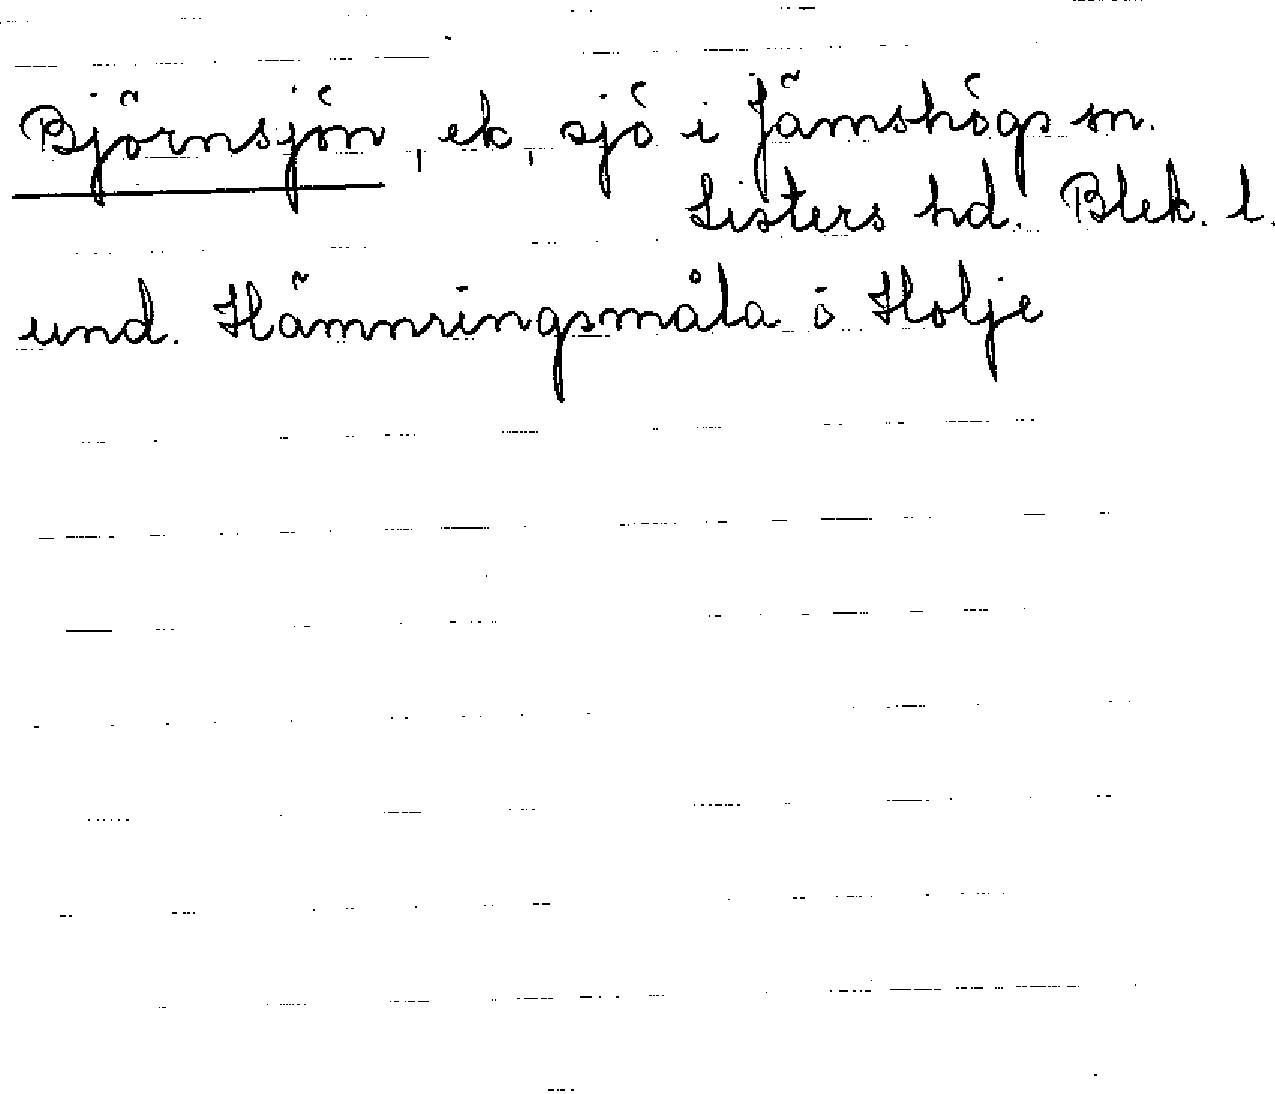 Björnsjön, ek, sjö i Jämshögs sn.
Listers hd. Blek. l.
und. Hämnringsmåla ö Holje